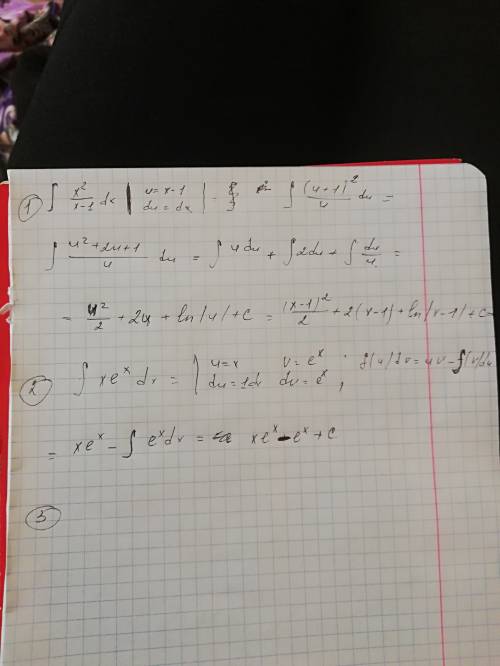 ① ∫ x²/(x-1) dx | u=x-1 du=dx | = ∫ (u+1)²/u du =
∫ (u²+2u+1)/u du = ∫ u du + ∫ 2du + ∫ du/u =
= u²/2 + 2u + ln|u| + C = (x-1)²/2 + 2(x-1) + ln|x-1| + C
② ∫ xeˣ dx = | u=x v=eˣ ; ∫(u)dv=uv-∫(v)du
du=1dx dv=eˣ ;
= xeˣ - ∫ eˣdx = xeˣ - eˣ + C
③